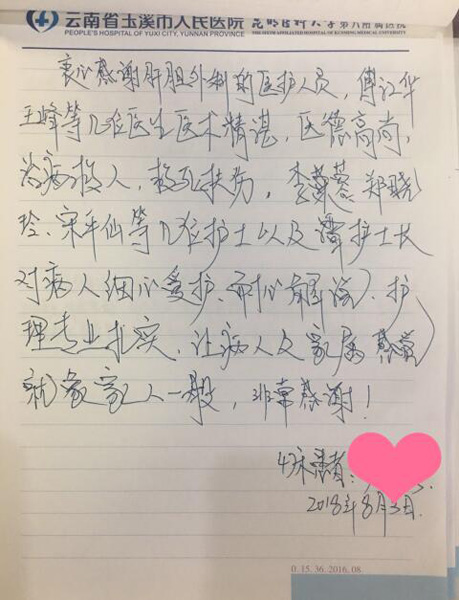 云南省玉溪市人民医院 昆明医科大学第六附属医院
PEOPLE'S HOSPITAL OF YUXI CITY, YUNNAN PROVINCE THE SIXTH AFFILIATED HOSPITAL OF KUNMING MEDICAL UNIVERSITY
衷心感谢肝胆外科的医护人员，傅江华
王峰等几位医生医术精谌，医德高尚，
治病救人，救死扶伤，李燕蓉 郑晓
玲、宋平仙等几位护士以及谭护士长
对病人细心爱护、耐心解说、护
理专业扎实，让病人及家属感觉
就象家人一般，非常感谢！
45床患者：
2018年8月3日.
0.15.36.2016.08